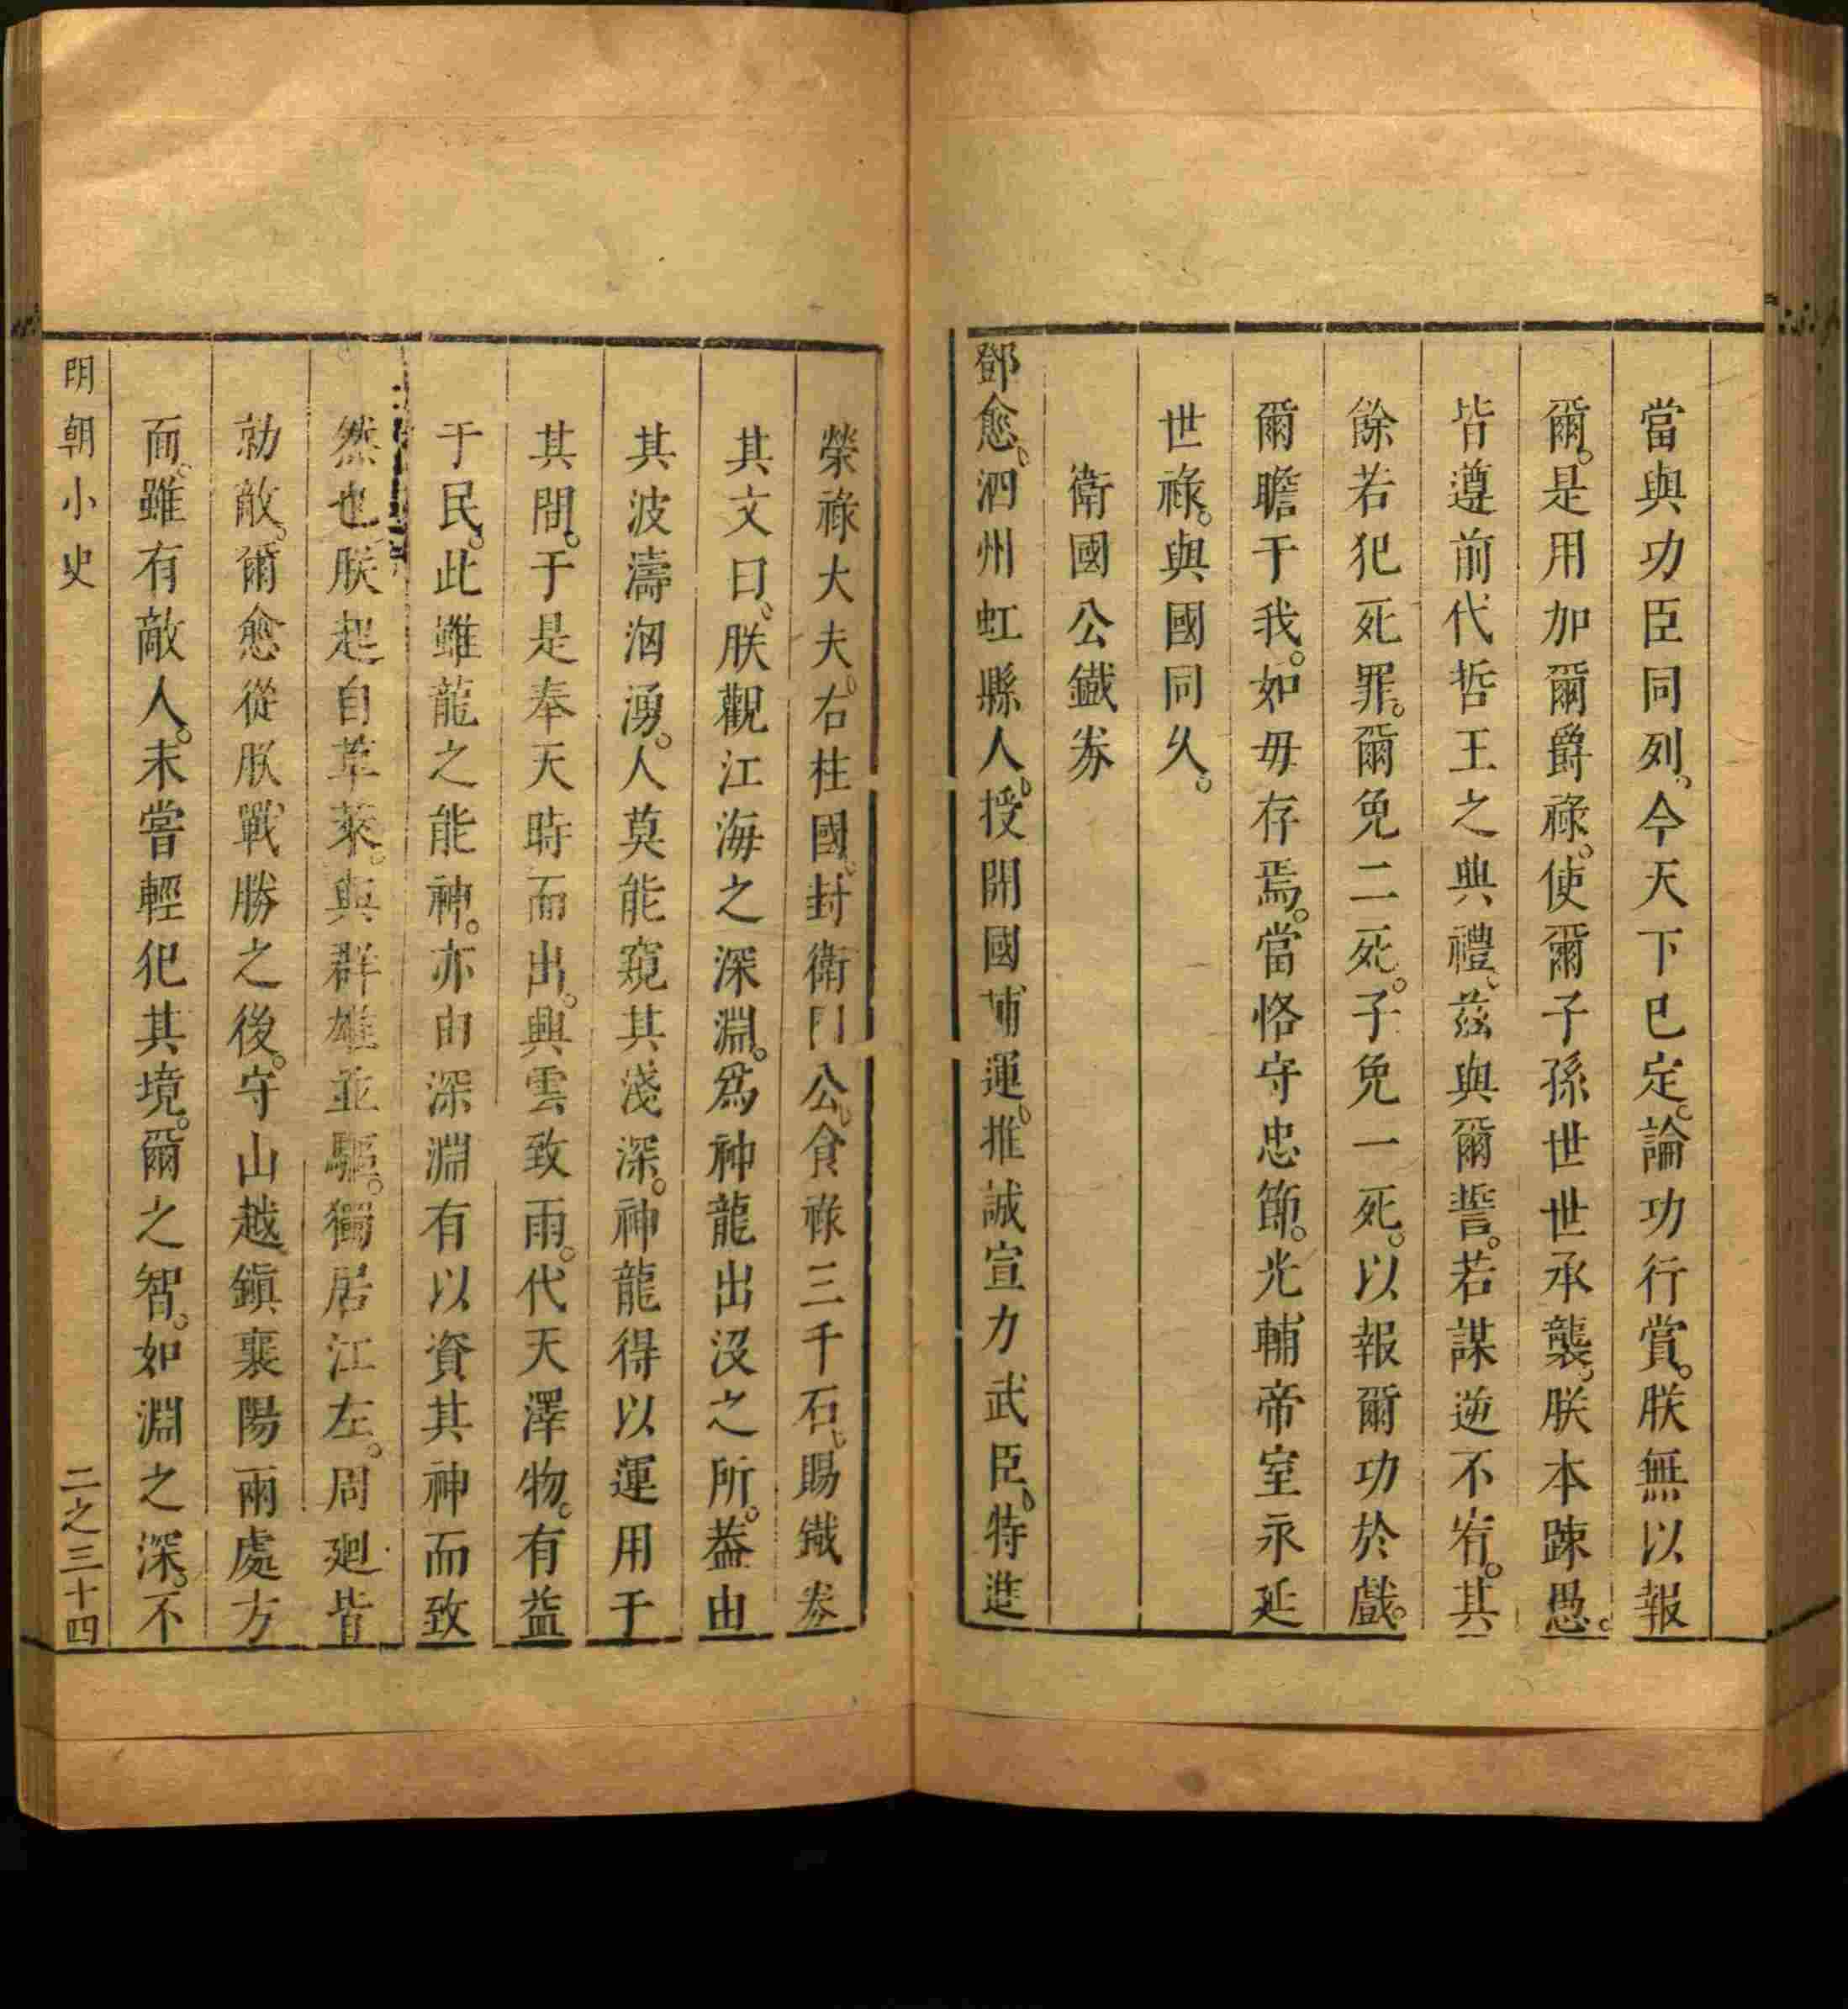 當與功臣同列今天下已定論功行賞朕無以報
爾是用加爾爵祿使爾子孫世世承襲朕本踈愚
皆遵前代哲王之典禮茲與爾誓若謀逆不宥其
餘若犯死罪爾免二死子免一死以報爾功於戲
爾瞻于我如毋存焉當恪守忠節光輔帝室永延
世祿與國同久
衛國公鐵券
鄧愈泗州虹縣人授開國輔運推誠宣力武臣特進
榮祿大夫右柱國封衛國公食祿三千石賜鐵券
其文曰朕觀江海之深淵爲神龍出沒之所葢由
其波濤洶湧人莫能窺其淺深神龍得以運用于
其間于是奉天時而出興雲致雨代天澤物有益
于民此雖龍之能神亦由深淵有以資其神而致
然也朕起自草萊與群雄並驅獨居江左周廻皆
勍敵爾愈從朕戰勝之後守山越鎭襄陽兩處方
面雖有敵人未嘗輕犯其境爾之智如淵之深不
明朝小史
二之三十四